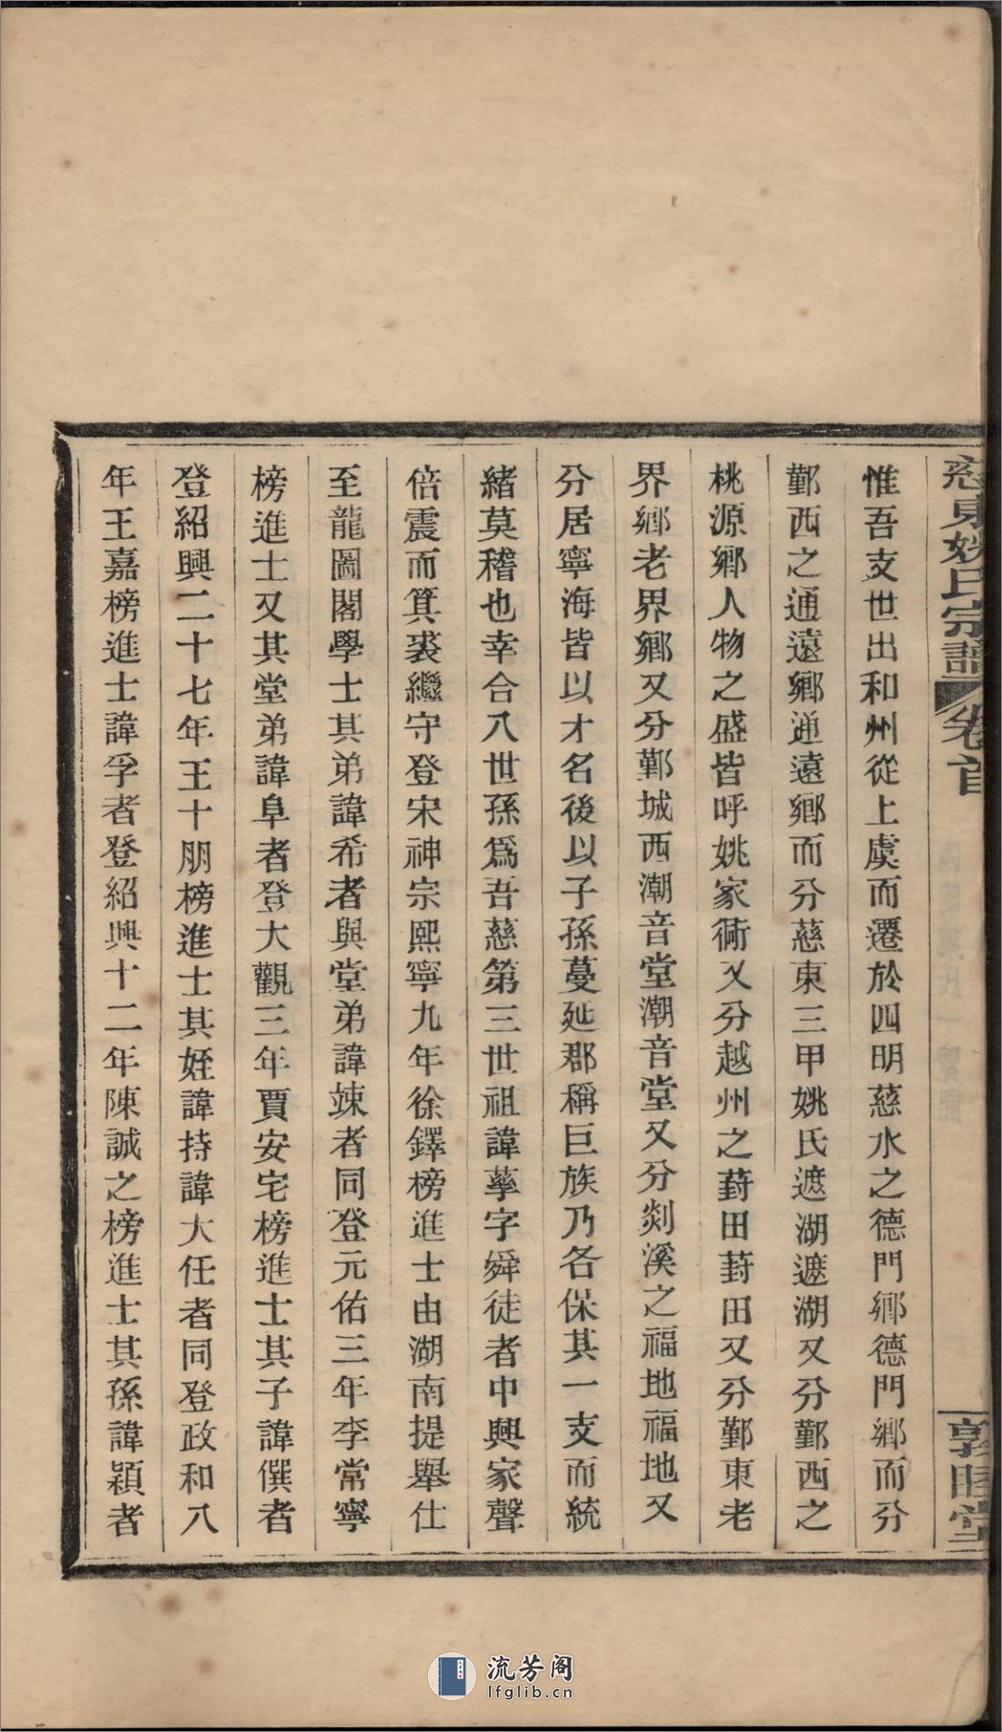 慈東姚氏宗譜 卷首 敦睦堂
惟吾支世出和州從上虞而遷於四明慈水之德門鄉德門鄉而分
鄞西之通遠鄉通遠鄉而分慈東三甲姚氏遮湖遮湖又分鄞西之
桃源鄉人物之盛皆呼姚家衕又分越州之葑田葑田又分鄞東老
界鄉老界鄉又分鄞城西潮音堂潮音堂又分剡溪之福地福地又
分居寧海皆以才名後以子孫蔓延郡稱巨族乃各保其一支而統
緒莫稽也幸合八世孫爲吾慈第三世祖諱孳字舜徒者中興家聲
倍震而箕裘繼守登宋神宗熙寧九年徐鐸榜進士由湖南提舉仕
至龍圖閣學士其弟諱希者與堂弟諱竦者同登元佑三年李常寧
榜進士又其堂弟諱阜者登大觀三年賈安宅榜進士其子諱僎者
登紹興二十七年王十朋榜進士其姪諱持諱大任者同登政和八
年王嘉榜進士諱孚者登紹興十二年陳誠之榜進士其孫諱穎者
流芳阁
lfglib.cn